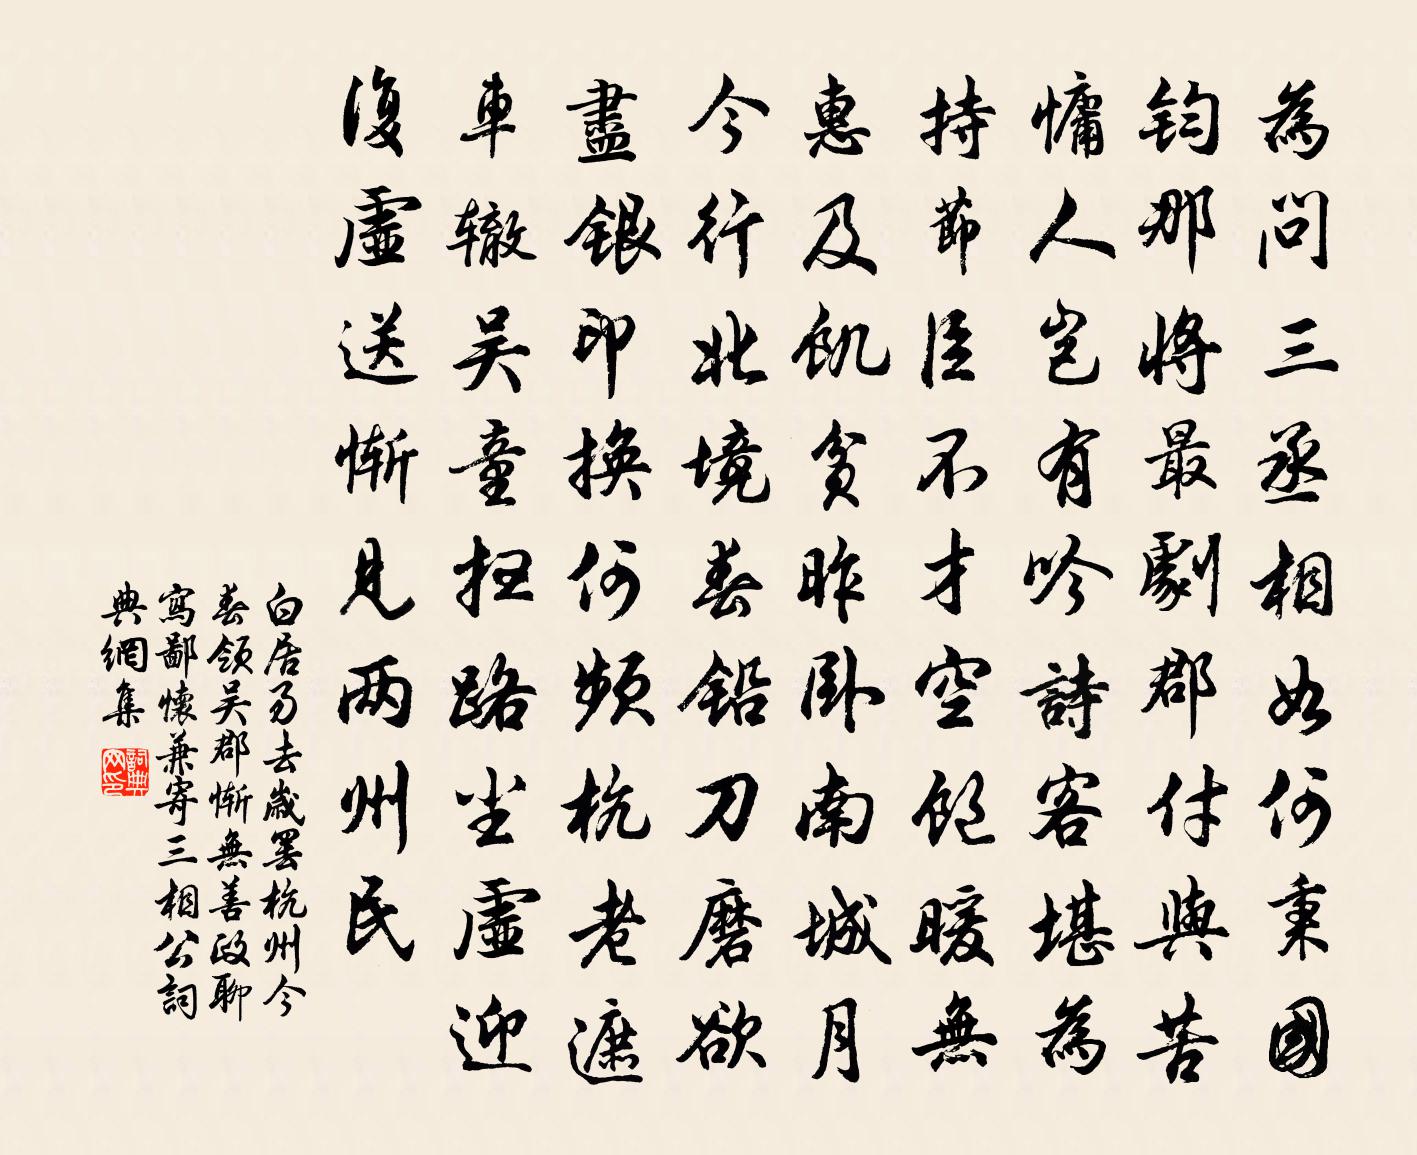 為問三丞相如何秉國
鈞那將最劇郡付與苦
慵人豈有吟詩客堪為
持節臣不才空飽暖無
惠及飢貧昨卧南城月
今行北境春鉛刀磨欲
盡銀印換何頻杭老遮
車轍吳童扫路尘虛迎
復虛送慚見两州民
白居易去歲罷杭州今
春領吳郡慚無善政聊
寫鄙懷兼寄三相公詞
典網集
詞典网印